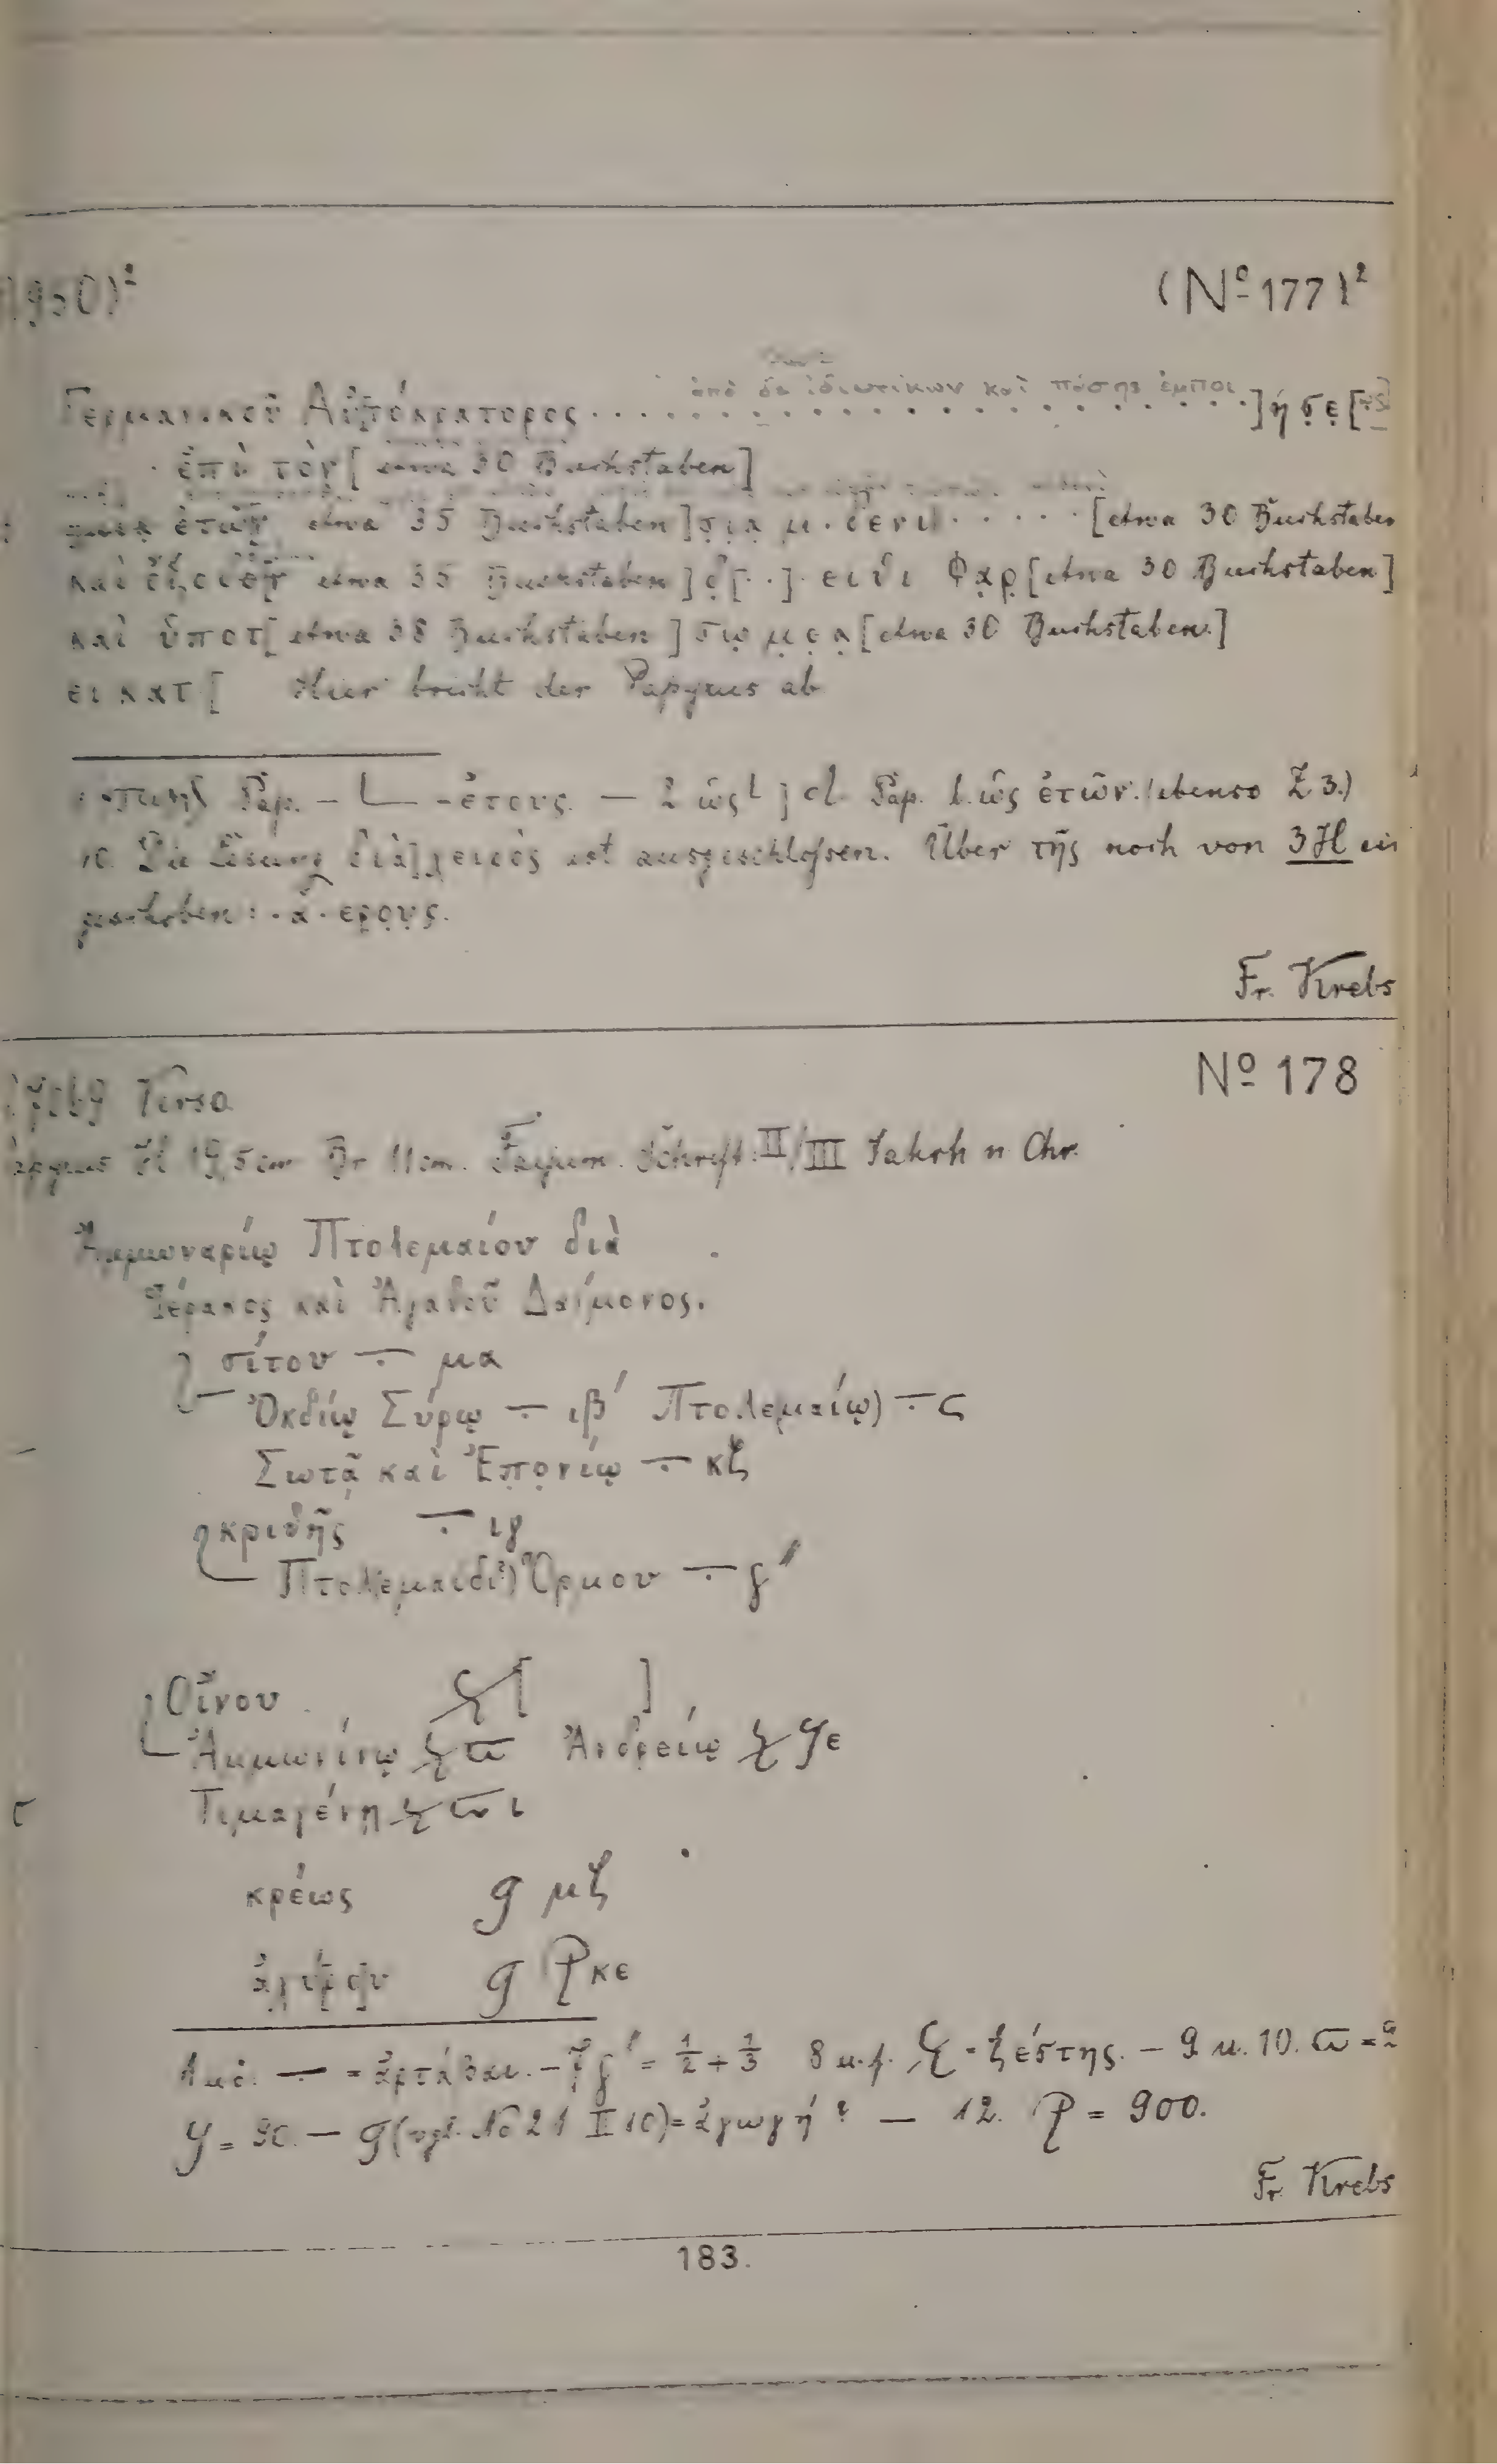 (Nº 177)²
ἀπὸ δὲ ἰδιωτικῶν καὶ πάσης ἐμποι
Γερμανικοῦ Αὐτόκρατορος . . . . . . . . . . ]ή σε[
ἐπὶ τὸν [etwa 30 Buchstaben]
ἐτῶν etwa 35 Buchstaben]σια μ . θενι . . . . . [etwa 30 Buchstaben
καὶ etwa 35 Buchstaben] . ειδι Φαρ[etwa 30 Buchstaben]
καὶ ὑποτ[etwa 38 Buchstaben]σωμεα[etwa 30 Buchstaben.]
ει κατ[ Hier bricht der Papyrus ab
Pap. – L – ἔτους. – 2 ὡς Pap. l. ὡς ἐτῶν. (ebenso Z 3.)
10. Die Lesung διὰ] χειρὸς ist ausgeschlossen. Über τῆς noch von 3 H ein
geschoben : . α . ερους.
Fr. Krebs
Nº 178
Verso.
H 19,5 cm Br 11 cm. Faijum. Schrift: II/III Jahrh n Chr.
Ἀμμωναρίῳ Πτολεμαίου διὰ
Ἱέρακος καὶ Ἀγαθοῦ Δαίμονος.
σίτου ÷ μα
Ὀκδίῳ Σύρῳ ÷ ιβ′ Πτολεμαίῳ) ÷ ς
Σωτᾷ καὶ Ἐπονίῳ ÷ κζ
κριθῆς ÷ ιγ
Πτολεμαιδι) Ὅρμου ÷
Οἴνου [ ]
Ἀμμωνίνῳ ϖ Ἀνδρείῳ ϟε
Τιμαγένῃ ϖ ι
κρέως g μζ
ἀχύρου g ϡκε
÷ = ἀρτάβαι. – = ½ + ⅓ 8 u. f. = ξέστης. – 9 u. 10. ϖ =
ϟ = 90. – g (vgl. No 21 II 10) = ἀγωγή? – 12. ϡ = 900.
Fr. Krebs
183.